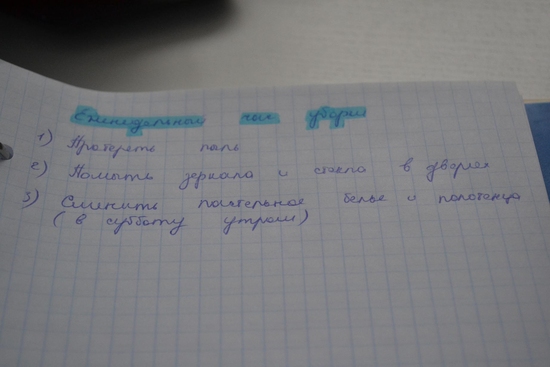 Еженедельная час уборки
1) Протереть пыль
2) Помыть зеркала и стекло в дверях
3) Сменить постельное белье и полотенца
(в субботу утром)